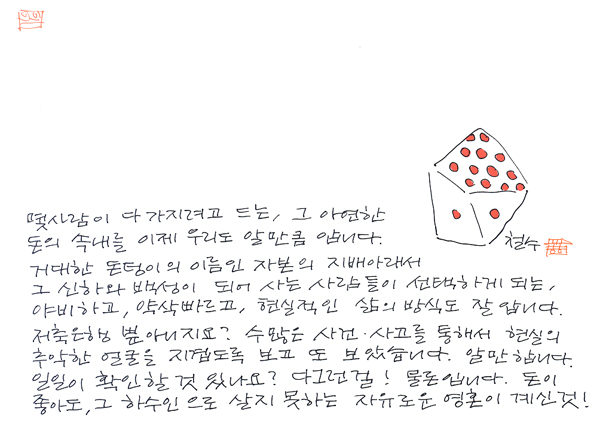 몇사람이 다 가지려고 드는, 그 아연한
돈의 속내를 이제 우리도 알만큼 압니다.
철수
거대한 돈덩이의 이름인 자본의 지배아래서
그 신하와 백성이 되어 사는 사람들이 선택하게 되는,
야비하고, 약삭빠르고, 현실적인 삶의 방식도 잘 압니다.
저축은행 뿐아니지요? 수많은 사건·사고를 통해서 현실의
추악한 얼굴을 지겹도록 보고 또 보았습니다. 알만합니다.
일일이 확인할것 있나요? 다그런걸! 물론입니다. 돈이
좋아도, 그 하수인으로 살지 못하는 자유로운 영혼이 계신것!